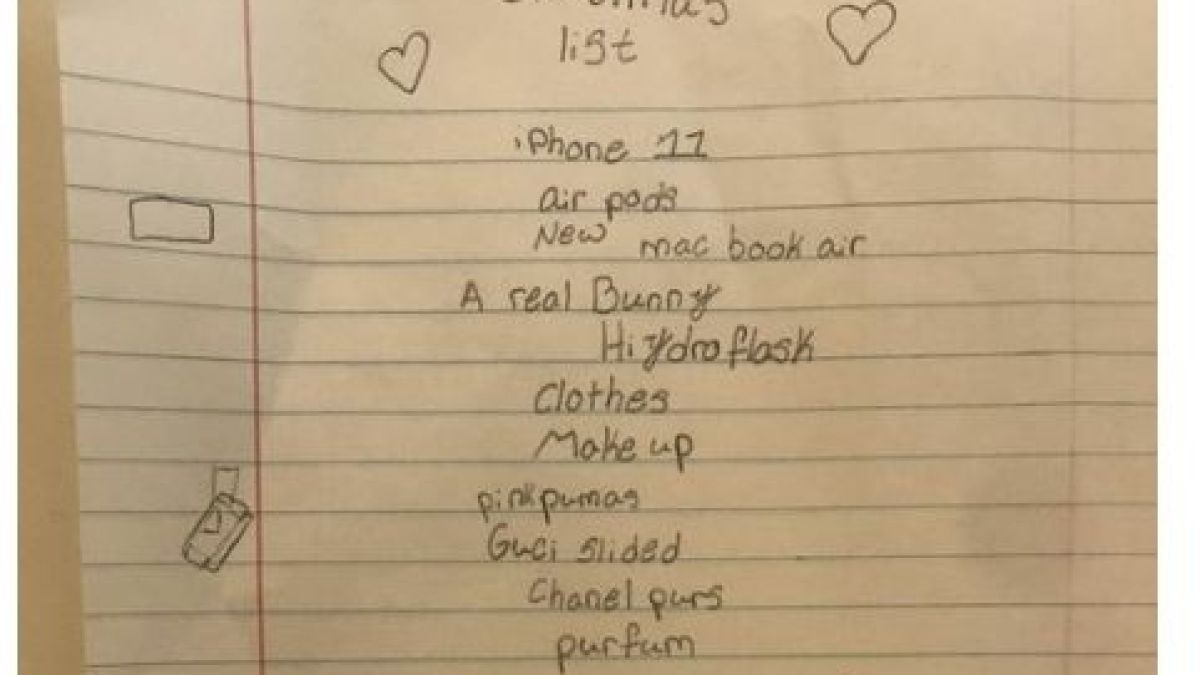 list
iPhone 11
air pods
New mac book air
A real Bunny
Hi ydro flask
Clothes
Make up
pink pumas
Guci slided
Chanel purs
purfum